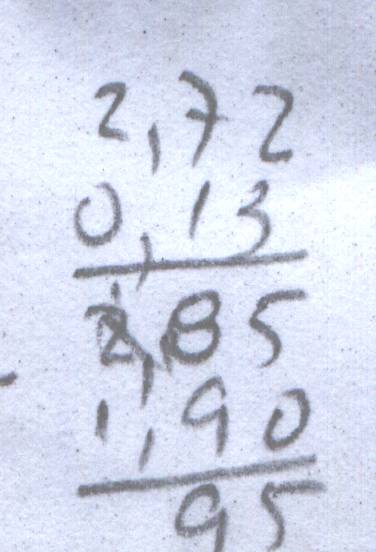 2,72
0,13
2,85
1,90
95